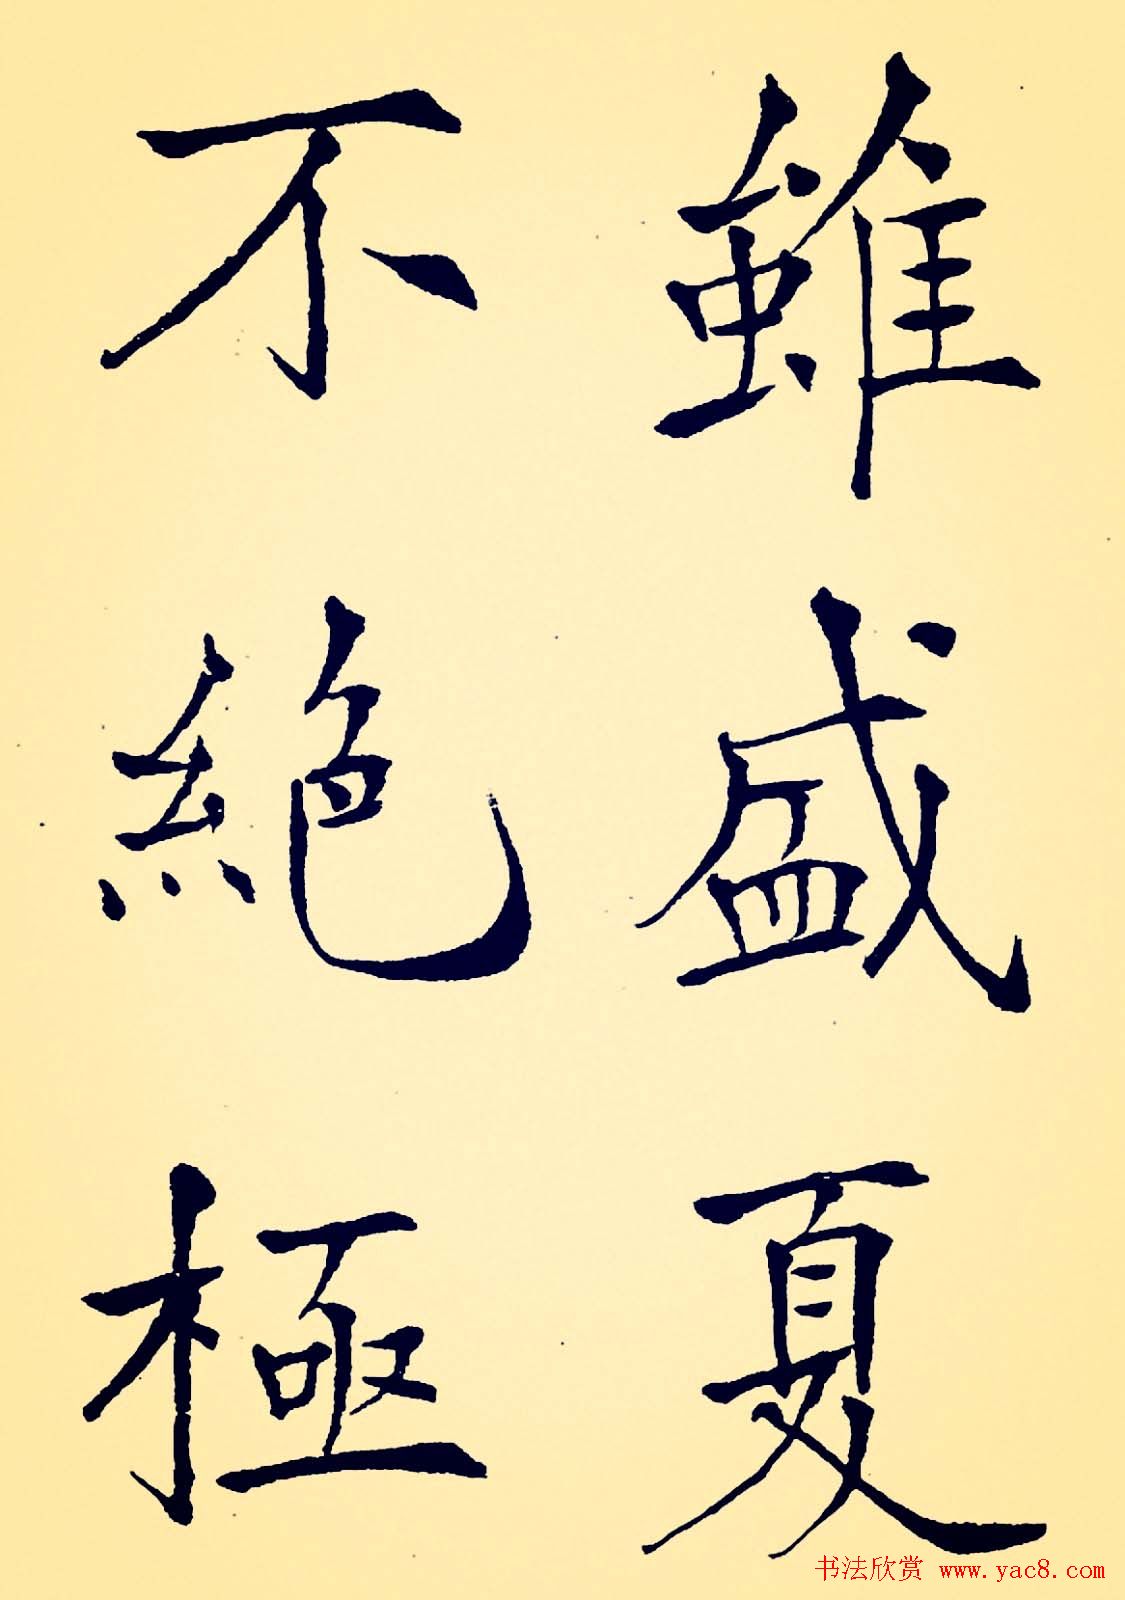 雖盛夏
不絕極
书法欣赏 www.yac8.com